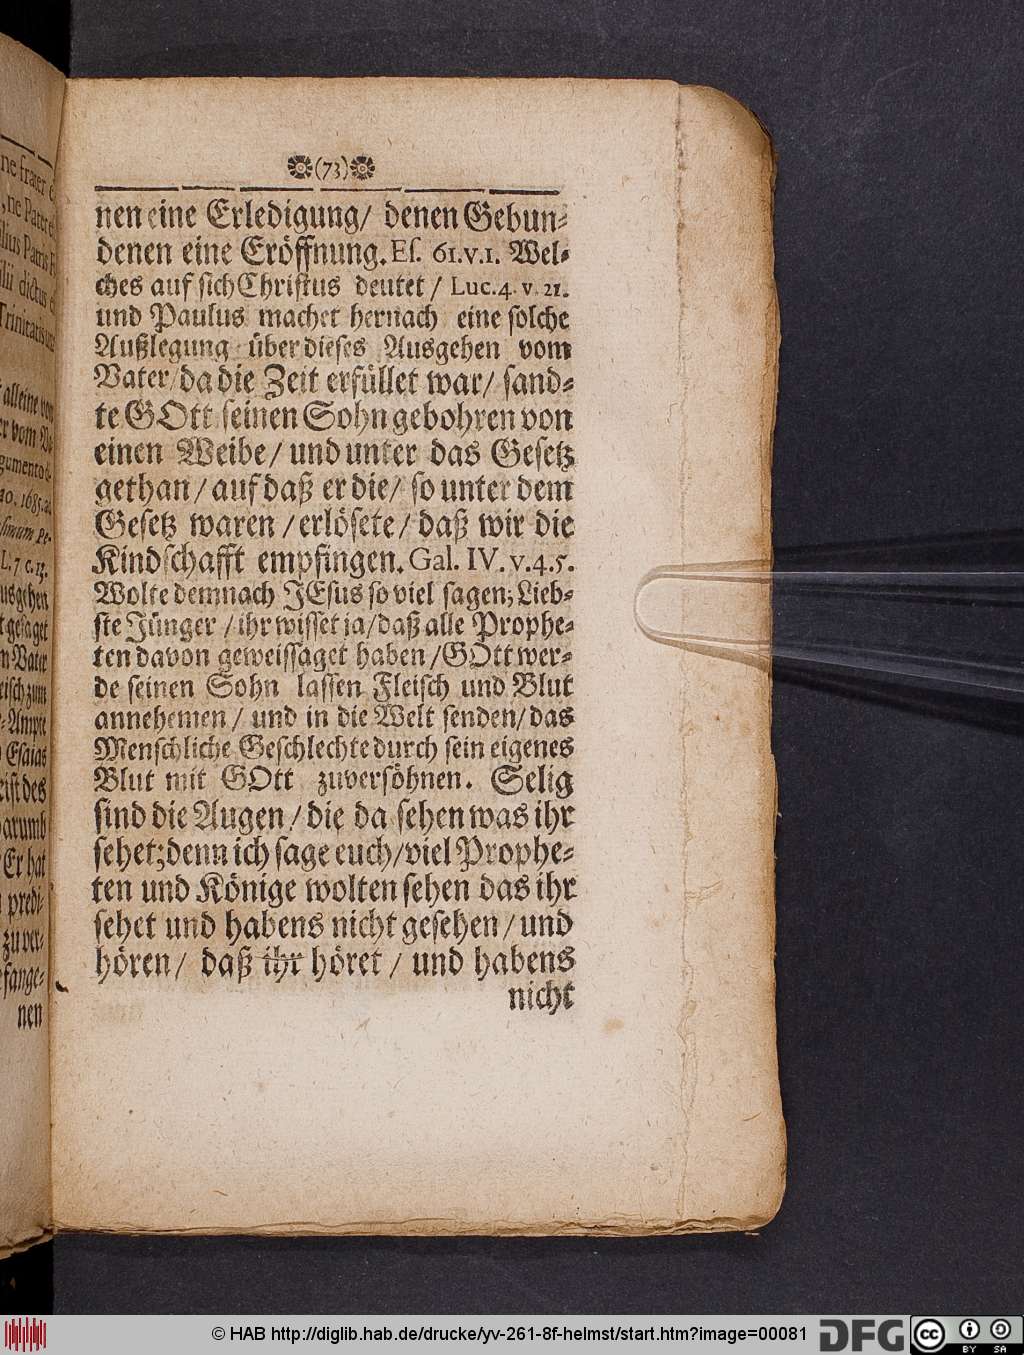 ne frater e
, ne Pater e
lius Patris F
ilii dictus e
Trinitatis
alleine von
er vom Va
gumento
no. 1685.
simum Pe-
L. 7 c. 13.
usgehen
t gesaget
m Vater
eisch zum
r-Ampte
Esaias
eist des
arumb
Er hat
predi-
zu ver-
efange-
nen
(73)
nen eine Erledigung/ denen Gebun-
denen eine Eröffnung. Eſ. 61.v.1. Wel-
ches auf ſich Chriſtus deutet / Luc.4. v. 21.
und Paulus machet hernach eine ſolche
Außlegung über dieſes Ausgehen vom
Vater/ da die Zeit erfüllet war/ ſand-
te GOtt ſeinen Sohn gebohren von
einen Weibe/ und unter das Geſetz
gethan/ auf daß er die/ ſo unter dem
Geſetz waren / erlöſete/ daß wir die
Kindſchafft empfingen. Gal. IV. v.4.5.
Wolte demnach JEſus ſo viel ſagen; Lieb-
ſte Jünger / ihr wiſſet ja/ daß alle Prophe-
ten davon geweiſſaget haben/ GOtt wer-
de ſeinen Sohn laſſen Fleiſch und Blut
annehemen/ und in die Welt ſenden/ das
Menſchliche Geſchlechte durch ſein eigenes
Blut mit GOtt zuverſöhnen. Selig
ſind die Augen/ die da ſehen was ihr
ſehet; denn ich ſage euch/ viel Prophe-
ten und Könige wolten ſehen das ihr
ſehet und habens nicht geſehen/ und
hören/ daß ihr höret / und habens
nicht
© HAB http://diglib.hab.de/drucke/yv-261-8f-helmst/start.htm?image=00081
DFG
cc
BY SA